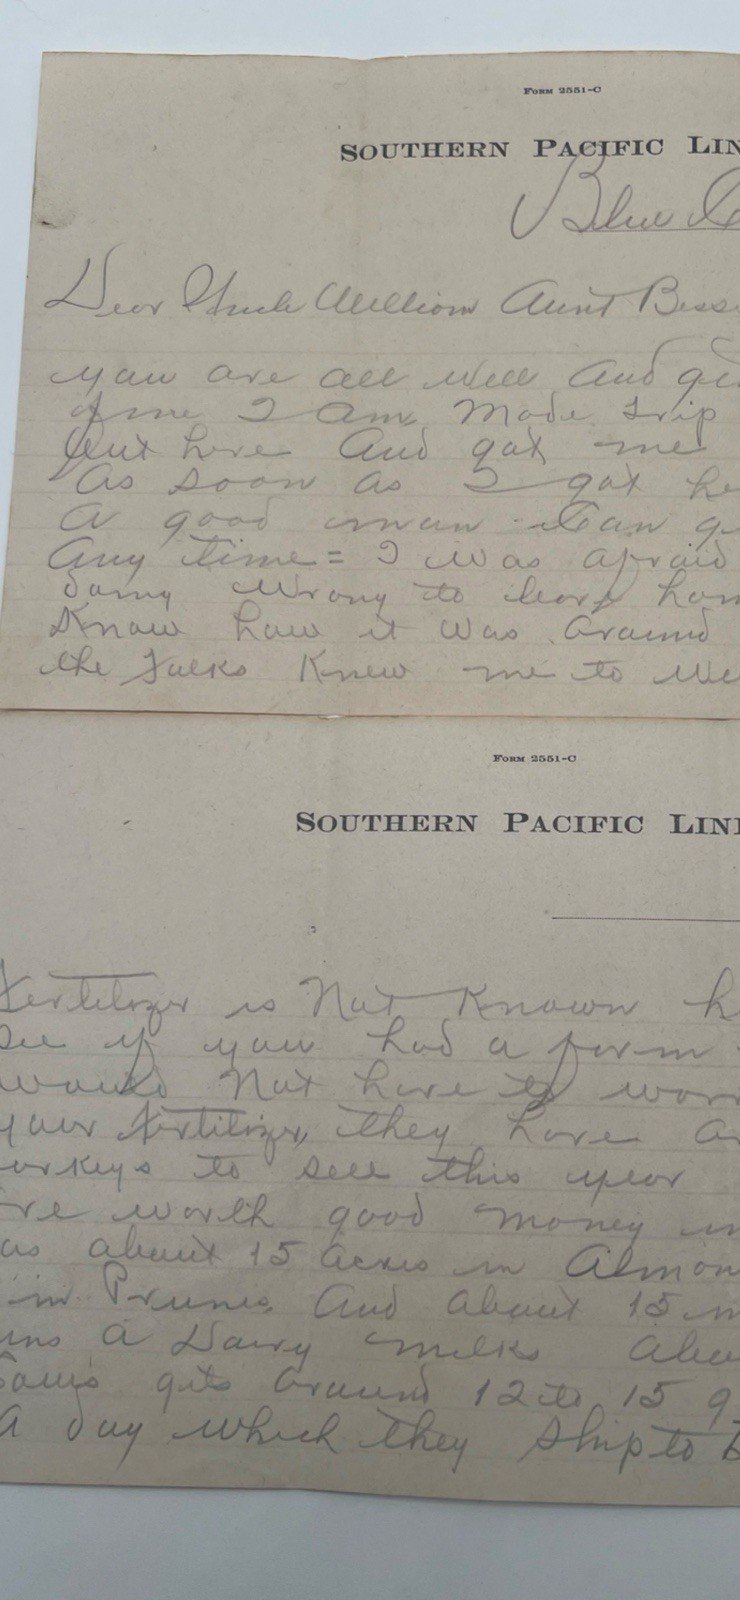 Form 2551-C
Southern Pacific Lin
Blue
Dear Uncle William Aunt Bess
you are all well and
of me I am Made trip
out here and got me
As soon as I got he
A good man Can g
Any time = I was afraid
wrong to leave hom
Know how it was around
the Folks Knew me to we
Form 2551-C
Southern Pacific Lin
Fertilizer is Not Known h
see if you had a farm
would Not have to worr
your Fertilizer, they have a
urkeys to sell this year
re worth good money in
as about 15 Acres in Almon
in Prunes And about 15
uns A Dairy milks Abou
gets around 12 to 15 g
A day which they Ship to